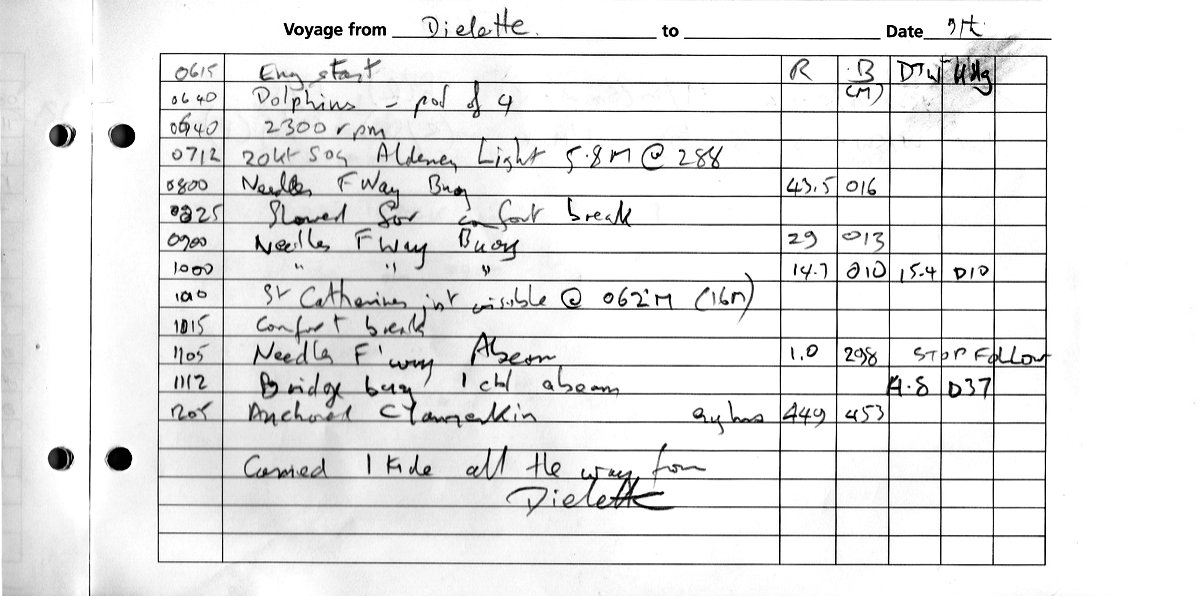 Voyage from Dielette. to Date
0615 Eng start R B DTW Hdg
0640 Dolphins - pod of 4 (M)
0640 2300 rpm
0712 20kt SOG Alderney Light 5.8M @ 288
0800 Needles F Way Buoy 43.5 016
0825 Slowed for comfort break
0900 Needles F Way Buoy 29 013
1000 " " " 14.7 010 15.4 010
St Catherines just visible @ 062°M (16M)
1015 Comfort break
1105 Needles F'way Abeam 1.0 298 STOP Follow
1112 Bridge buoy 1 cbl abeam 4.8 037
1205 Anchored hrs 449 453
Carried 1 tide all the way from
Dielette